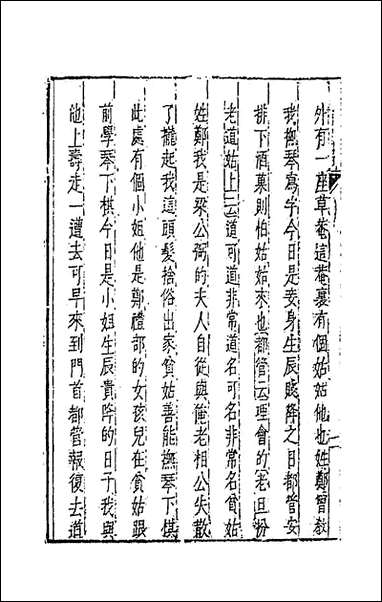 外有一座草菴這菴裏有個姑姑他也姓鄭曾教
我撫琴寫字今日是妾身生辰賤降之日都管安
排下酒菓則怕姑姑來也都管云理會的老旦扮
老道姑上云道可道非常道名可名非常名貧姑
姓鄭我是梁公弼的夫人自從與俺老相公失散
了攏起我這頭髮捨俗出家貧姑善能撫琴下棋
此處有個小姐他是鄭禮部的女孩兒在貧姑跟
前學琴下棋今日是小姐生辰貴降的日子我與
他上壽走一遭去可早來到門首都管報復去道